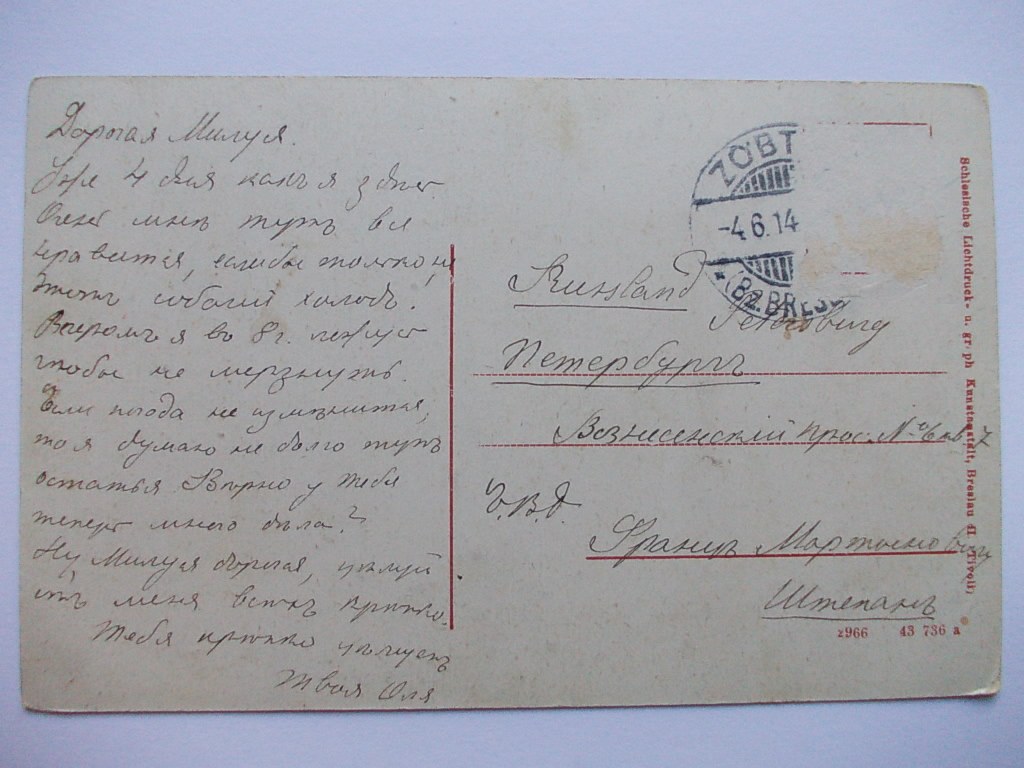 Дорогая Милуся.
Уже 4 дня какъ я здѣсь
Очень мнѣ тутъ все
нравится, еслибы только не
этотъ собачій холодъ!
Вечеромъ я въ 8 г. лежу
чтобы не мерзнуть.
Если погода не измѣнится,
то я думаю не долго тутъ
остаться Вѣрно у тебя
теперь много дѣла?
Ну Милуся дорогая, цѣлуй
отъ меня всѣхъ крѣпко.
Тебя крѣпко цѣлуетъ
твоя Оля
ZOBT
-4.6.14
(Bz. BRESL
Russland
Petersburg
Петербургъ
Вознесенскій прос. № 6 кв 7
Е.В.Б.
Францъ Мартыновичу
Штепанъ
z966 43 736 a
Schlesische Lichtdruck- u. gr. ph Kunstanstalt, Breslau II. (Tivoli)